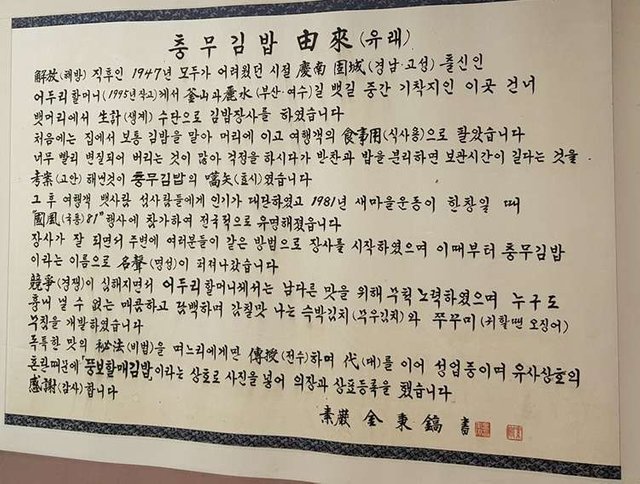 충무김밥 由來(유래)
解放(해방) 직후인 1947년 모두가 어려웠던 시절 慶南 固城(경남·고성) 출신인
어두리할머니(1995년작고)께서 釜山과 麗水(부산·여수)길 뱃길 중간 기착지인 이곳 건너
뱃머리에서 生計(생계) 수단으로 김밥장사를 하였습니다
처음에는 집에서 보통 김밥을 말아 머리에 이고 여행객의 食事用(식사용)으로 팔았습니다
너무 빨리 변질되어 버리는 것이 많아 걱정을 하시다가 반찬과 밥을 분리하면 보관시간이 길다는 것을
考案(고안) 해낸것이 충무김밥의 嚆矢(효시)였습니다
그 후 여행객 뱃사람 섬사람들에게 인기가 대단하였고 1981년 새마을운동이 한창일 때
國風(국풍)81"행사에 참가하여 전국적으로 유명해졌읍니다
장사가 잘 되면서 주변에 여러분들이 같은 방법으로 장사를 시작하였으며 이때부터 충무김밥
이라는 이름으로 名聲(명성)이 퍼져나갔습니다
競爭(경쟁)이 심해지면서 어두리할머니께서는 남다른 맛을 위해 무척 노력하였으며 누구도
흉내 낼 수 없는 매콤하고 담백하며 감칠맛 나는 슥박김치(무우김치)와 쭈꾸미(귀할땐 오징어)
무침을 개발하였습니다
독특한 맛의 秘法(비법)을 며느리에게만 傳授(전수)하며 代(대)를 이어 성업중이며 유사상호의
혼란때문에 "뚱보할매김밥"이라는 상호로 사진을 넣어 의장과 상표등록을 했습니다
感謝(감사)합니다
素巖 金東鎬 書